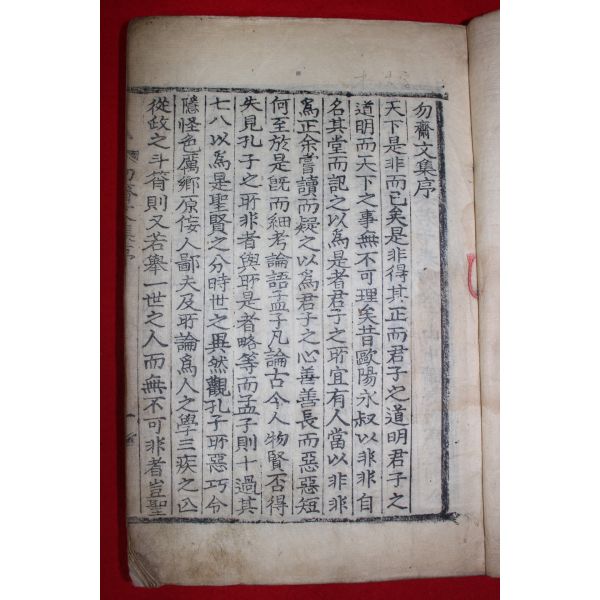 勿齋文集序
天下是非而已矣是非得其正而君子之道明君子之
道明而天下之事無不可理矣昔歐陽永叔以非非自
名其堂而記之以爲是者君子之所宜有人當以非非
爲正余嘗讀而疑之以爲君子之心善善長而惡惡短
何至於是旣而細考論語孟子凡論古今人物賢否得
失見孔子之所非者與所是者略等而孟子則十過其
七八以爲是聖賢之分時世之異然觀孔子所惡巧令
隱怪色厲鄕原佞人鄙夫及所論爲人之學三疾之亡
從政之斗筲則又若擧一世之人而無不可非者豈聖
勿齋文集序
一